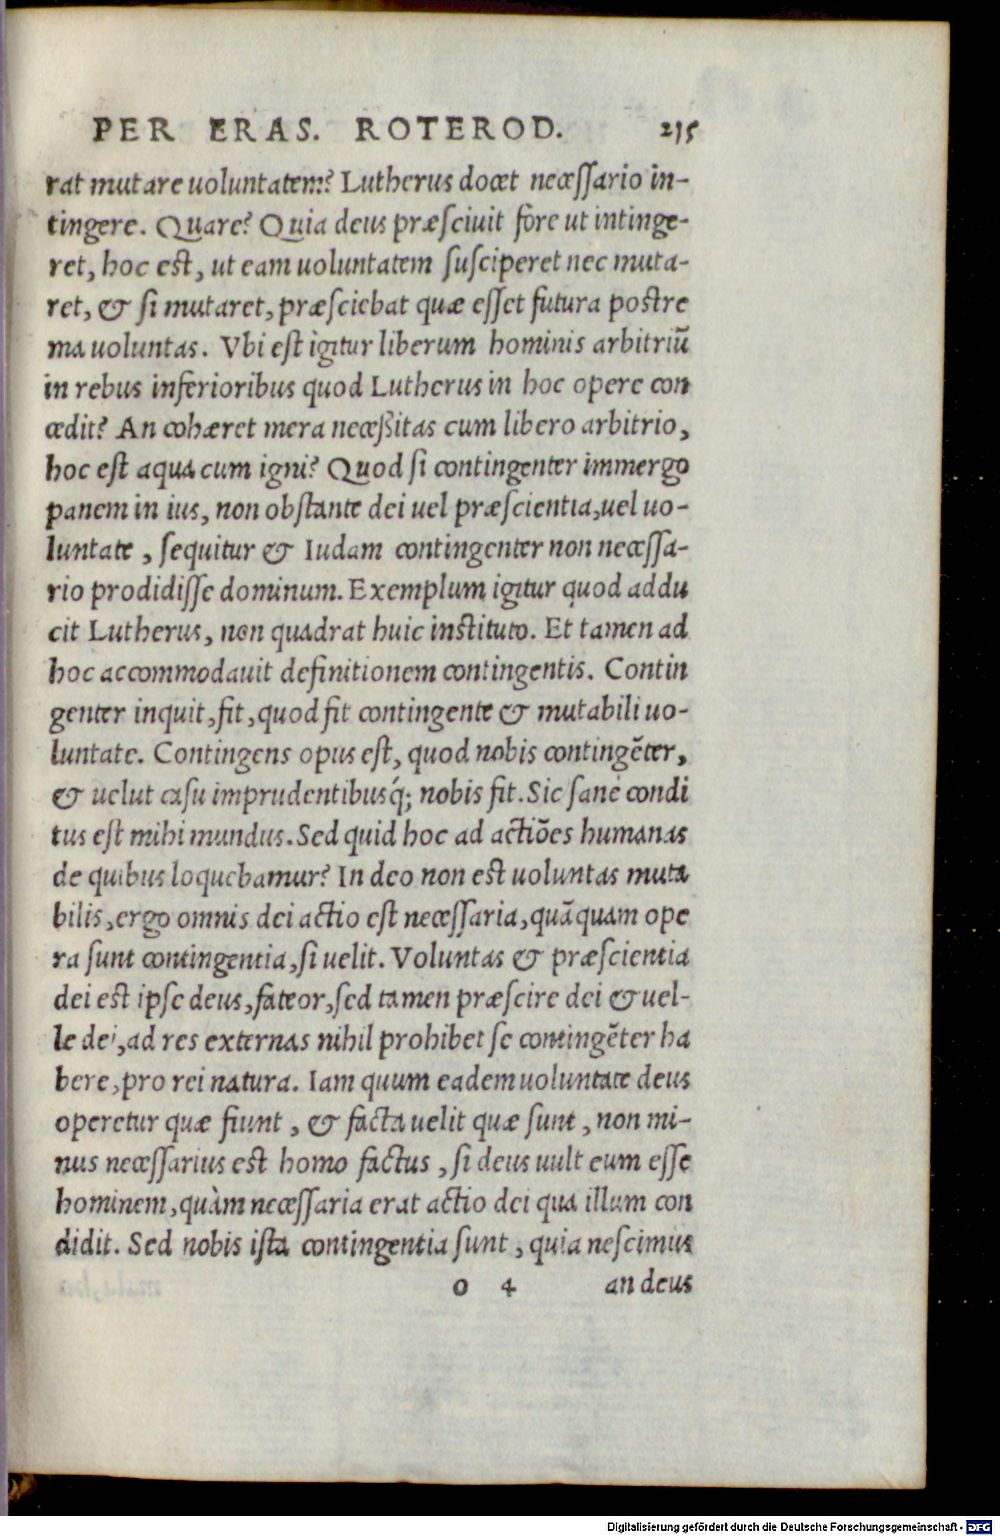 PER ERAS. ROTEROD. 215
rat mutare uoluntatem? Lutherus docet necessario in-
tingere. Quare? Quia deus præsciuit fore ut intinge-
ret, hoc est, ut eam uoluntatem susciperet nec muta-
ret, & si mutaret, præsciebat quæ esset futura postre
ma uoluntas. Vbi est igitur liberum hominis arbitriũ
in rebus inferioribus quod Lutherus in hoc opere con
cedit? An cohæret mera necessitas cum libero arbitrio,
hoc est aqua cum igni? Quod si contingenter immergo
panem in ius, non obstante dei uel præscientia, uel uo-
luntate, sequitur & Iudam contingenter non necessa-
rio prodidisse dominum. Exemplum igitur quod addu
cit Lutherus, non quadrat huic instituto. Et tamen ad
hoc accommodauit definitionem contingentis. Contin
genter inquit, fit, quod fit contingente & mutabili uo-
luntate. Contingens opus est, quod nobis contingẽter,
& uelut casu imprudentibusq́; nobis fit. Sic sanè condi
tus est mihi mundus. Sed quid hoc ad actiões humanas
de quibus loquebamur? In deo non est uoluntas muta
bilis, ergo omnis dei actio est necessaria, quãquam ope
ra sunt contingentia, si uelit. Voluntas & præscientia
dei est ipse deus, fateor, sed tamen præscire dei & uel-
le dei, ad res externas nihil prohibet se contingẽter ha
bere, pro rei natura. Iam quum eadem uoluntate deus
operetur quæ fiunt, & facta uelit quæ sunt, non mi-
nus necessarius est homo factus, si deus uult eum esse
hominem, quàm necessaria erat actio dei qua illum con
didit. Sed nobis ista contingentia sunt, quia nescimus
o 4 an deus
Digitalisierung gefördert durch die Deutsche Forschungsgemeinschaft - DFG